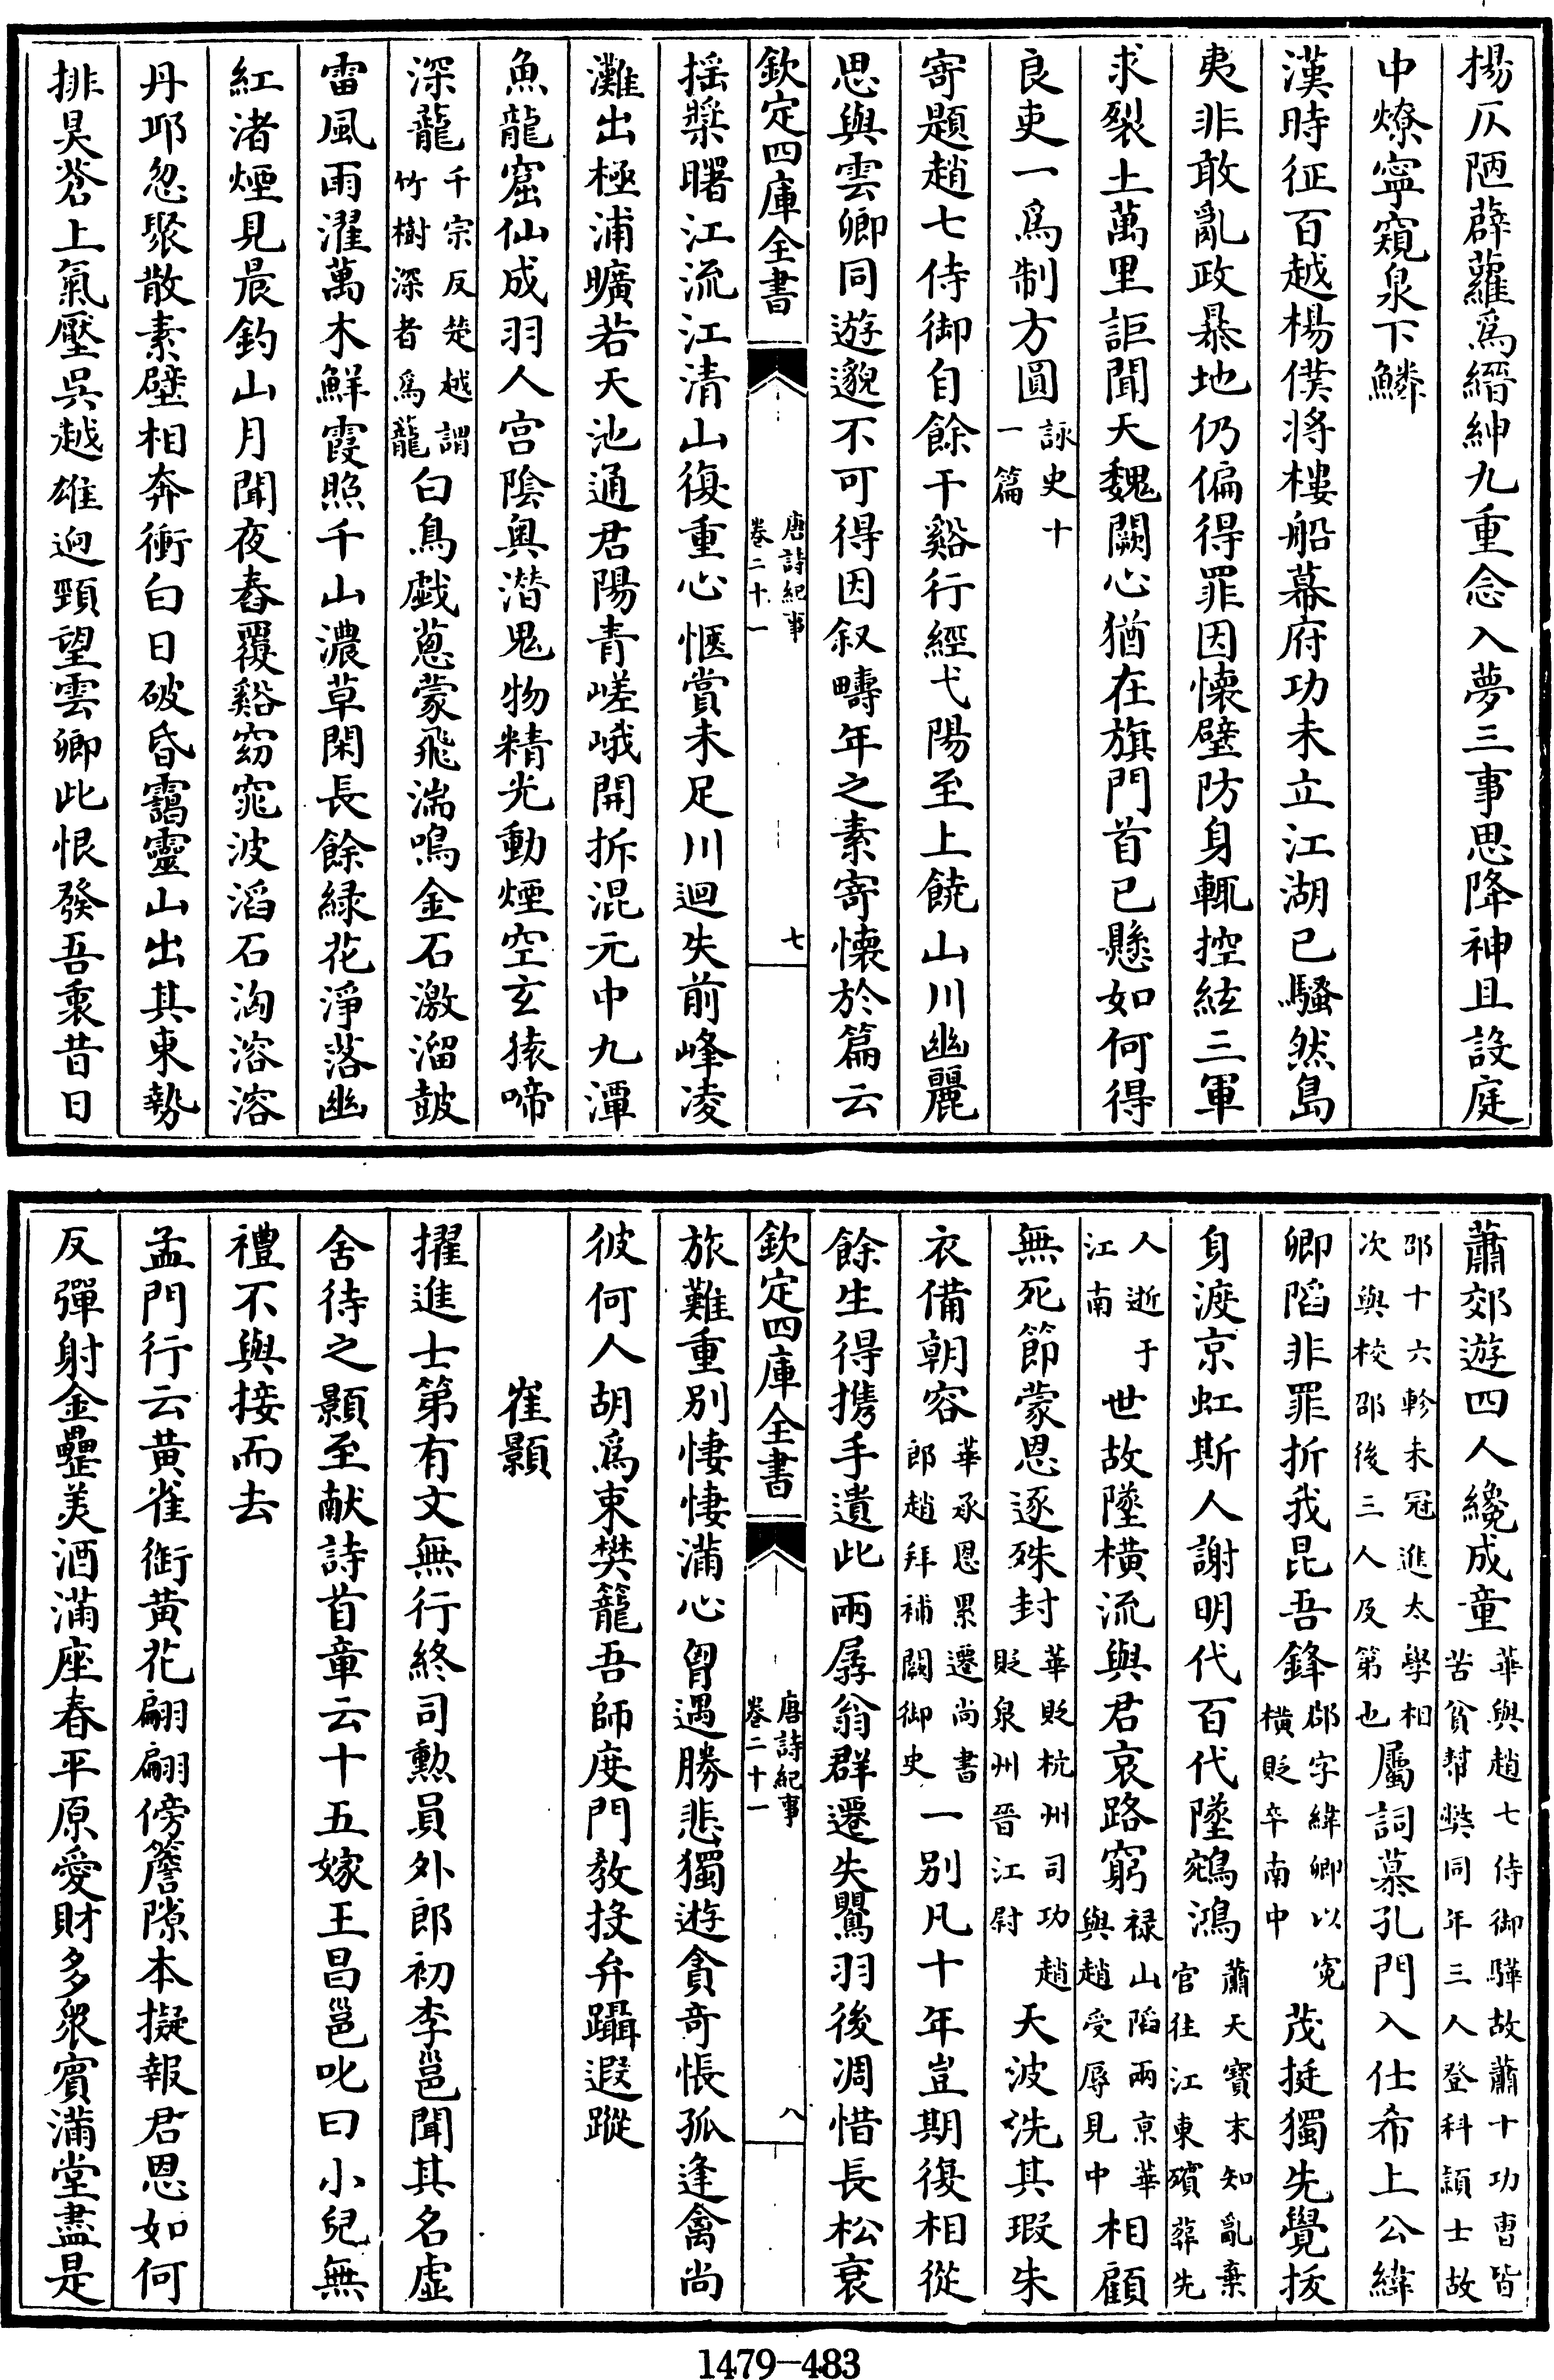 揚仄陋薜蘿爲縉紳九重念入夢三事思降神且設庭
中燎寧窺泉下鱗
漢時征百越楊僕將樓船幕府功未立江湖已騷然島
夷非敢亂政暴地仍偏得罪因懷璧防身輒控絃三軍
求裂土萬里詎聞天魏闕心猶在旗門首已懸如何得
良吏一爲制方圓詠史十一篇
寄題趙七侍御自餘干谿行經弋陽至上饒山川幽麗
思與雲卿同遊邈不可得因叙疇年之素寄懷於篇云
欽定四庫全書
唐詩紀事
卷二十一
七
摇槳曙江流江清山復重心愜賞未足川迴失前峰凌
灘出極浦曠若天池通君陽青嵯峨開拆混元中九潭
魚龍窟仙成羽人宫陰奥潜鬼物精光動煙空玄猿啼
深龍千宗反楚越謂竹樹深者爲龍白鳥戯蔥蒙飛湍鳴金石激溜鼓
雷風雨濯萬木鮮霞照千山濃草閑長餘緑花淨落幽
紅渚煙見晨釣山月聞夜舂覆谿窈窕波滔石洶溶溶
丹邱忽聚散素壁相奔衝白日破昏靄靈山出其東勢
排昊蒼上氣壓呉越雄迥頸望雲卿此恨發吾衷昔日
蕭郊遊四人纔成童華與趙七侍御驊故蕭十功曹皆苦貧幣獘同年三人登科頴士故
邵十六軫未冠進太學相次與校邵後三人及第也屬詞慕孔門入仕希上公緯
卿陷非罪折我昆吾鋒邵字緯卿以寃横貶卒南中茂挺獨先覺拔
身渡京虹斯人謝明代百代墜鵷鴻蕭天寶末知亂棄官往江東殯葬先
人逝于江南世故墜横流與君哀路窮禄山陷兩京華與趙受辱見中相顧
無死節蒙恩逐殊封華貶杭州司功趙貶泉州晋江尉天波洗其瑕朱
衣備朝容華承恩累遷尚書郎趙拜補闕御史一别凡十年豈期復相從
餘生得攜手遺此兩孱翁群遷失鸎羽後凋惜長松衰
欽定四庫全書
唐詩紀事
卷二十一
八
旅難重别悽悽滿心胷遇勝悲獨遊貪奇悵孤逢禽尚
彼何人胡爲束樊籠吾師度門教投弁躡遐蹤
崔顥
擢進士第有文無行終司勲員外郎初李邕聞其名虚
舍待之顥至献詩首章云十五嫁王昌邕叱曰小兒無
禮不與接而去
孟門行云黄雀銜黄花翩翩傍簷隙本擬報君恩如何
反彈射金罍美酒滿座春平原愛財多衆賓滿堂盡是
1479-483